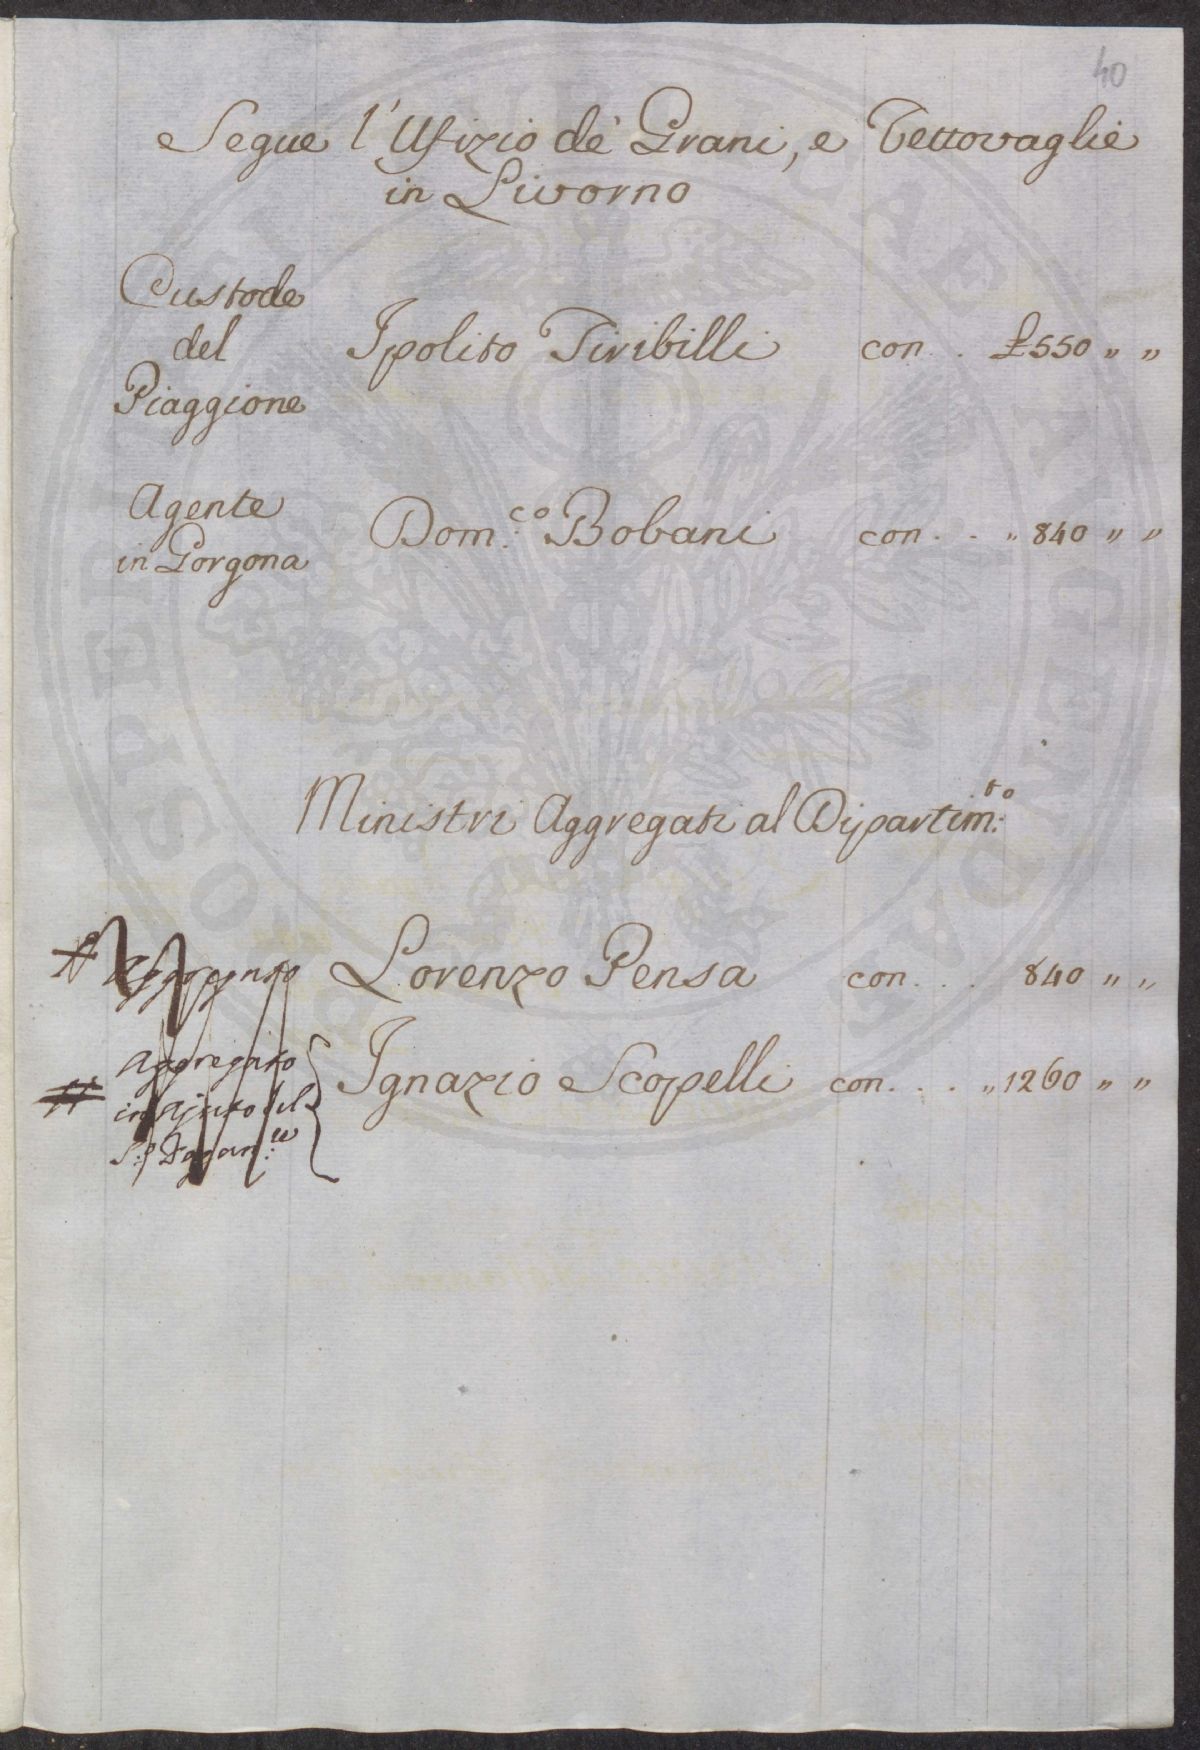 40
Segue l'Ufizio de' Grani, e Vettovaglie
in Livorno
Custode
del Ipolito Tiribilli con . . £ 550 „ „
Piaggione
Agente
in Gorgona Dom.co Bobani con . . „ 840 „ „
Ministri Aggregati al Dipartim.to
# Aggregato Lorenzo Pensa con . . . 840 „ „
Aggregato
# in Ajuto del Ignazio Scopelli con . . . „ 1260 „ „